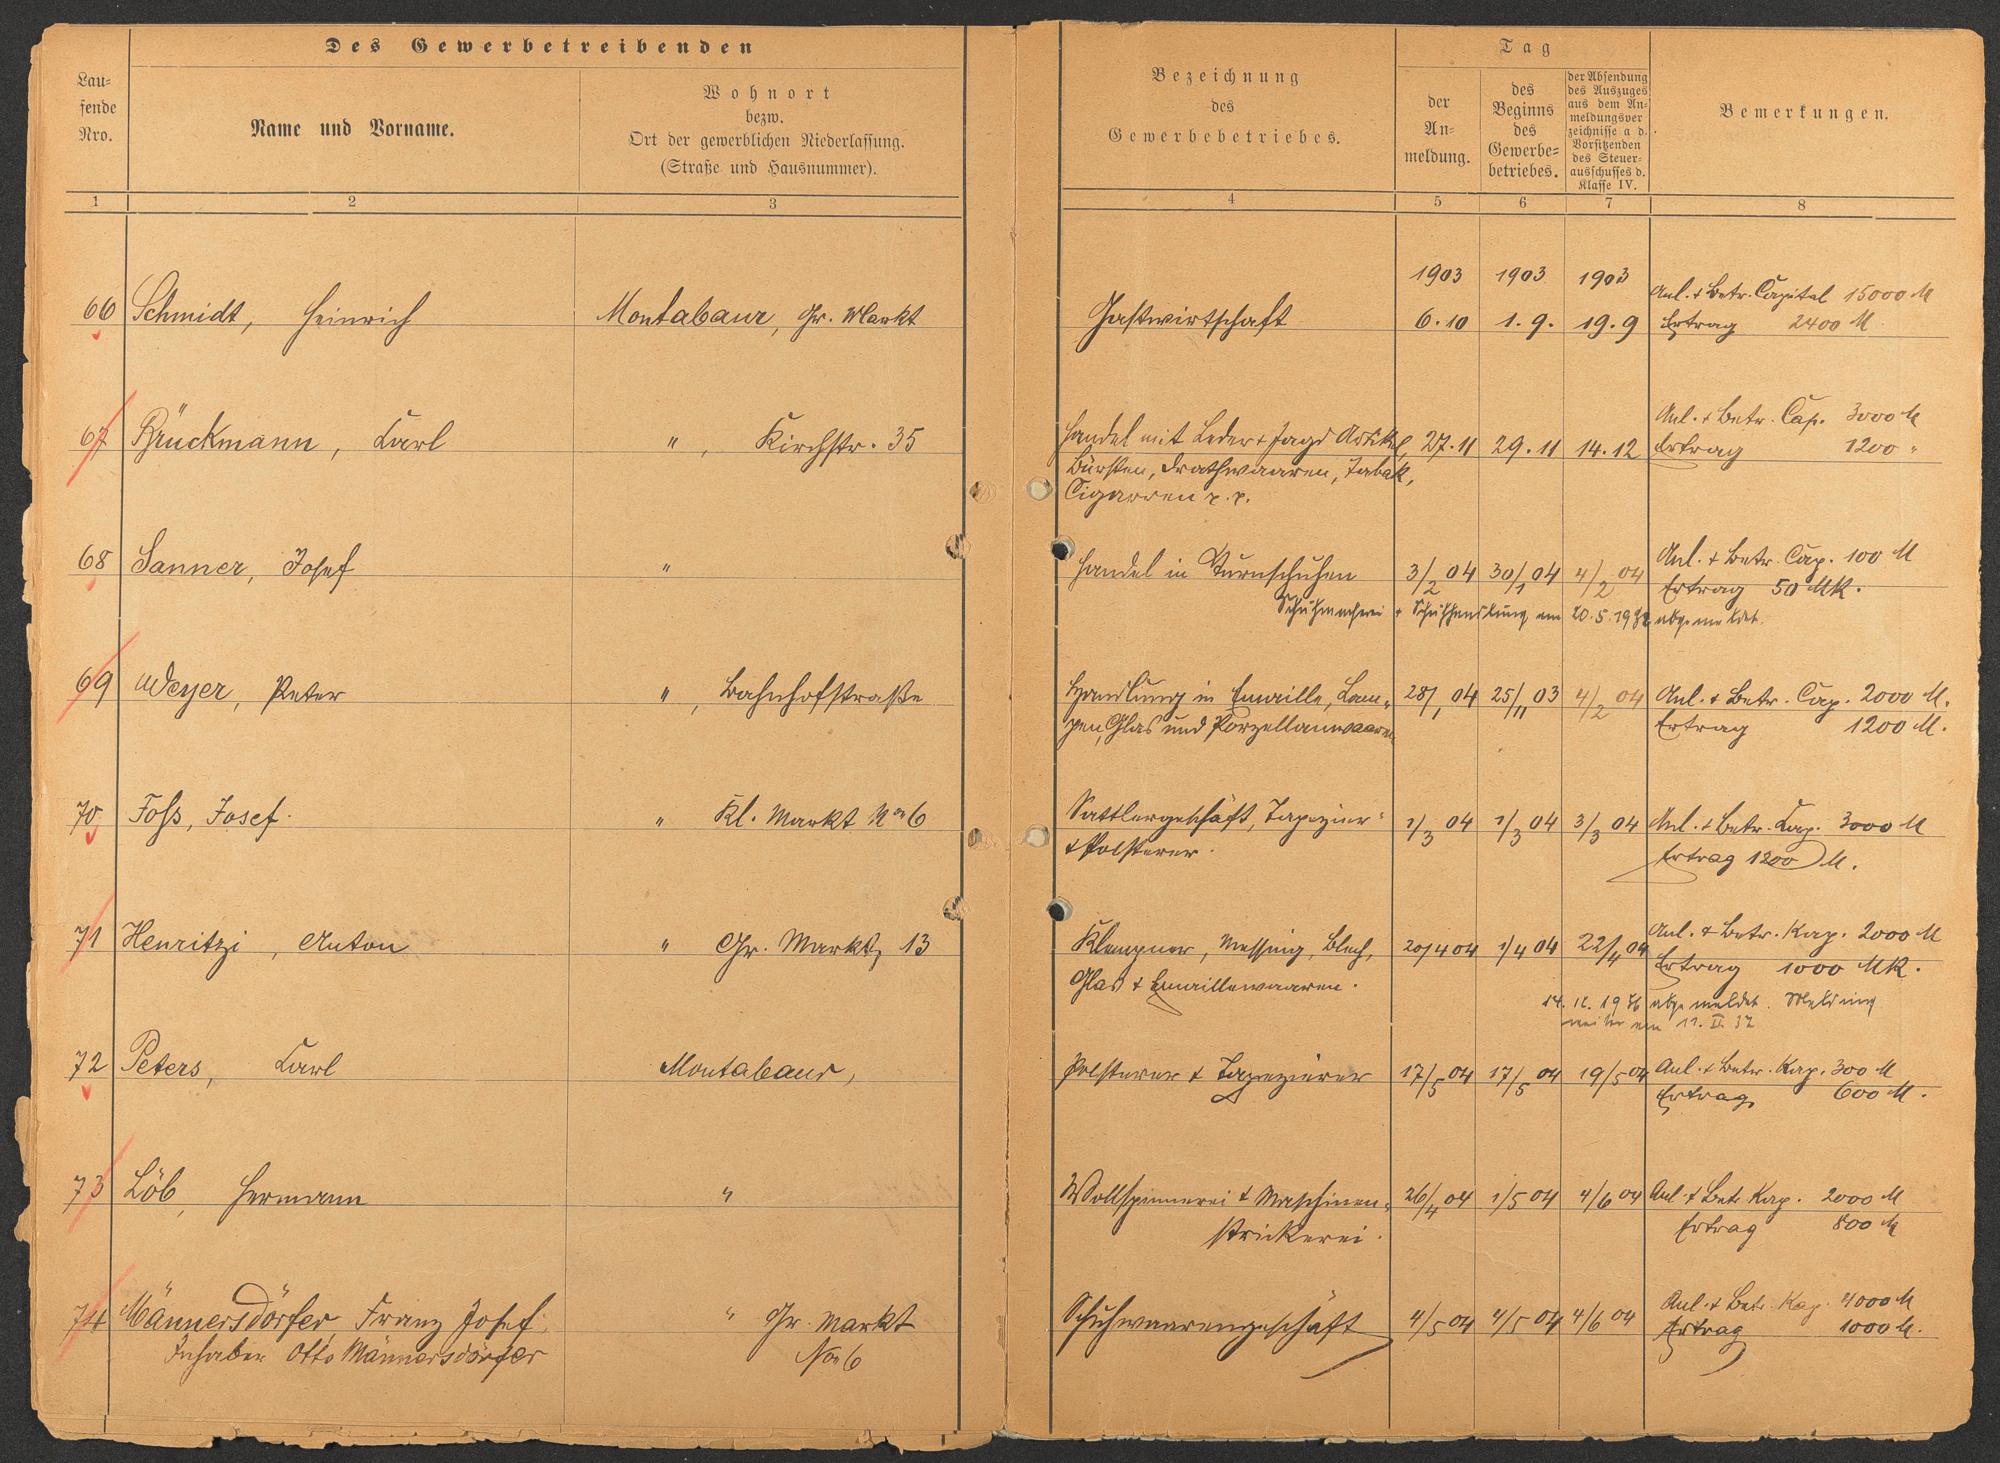 Des Gewerbetreibenden
Lau=
fende
Nro.
Name und Vorname.
Wohnort
bezw.
Ort der gewerblichen Niederlassung.
(Straße und Hausnummer).
Bezeichnung
des
Gewerbebetriebes.
Tag
der
An=
meldung.
des
Beginns
des
Gewerbe=
betriebes.
der Absendung
des Auszuges
aus dem An=
meldungsver
zeichnisse a d.
Vorsitzenden
des Steuer=
ausschusses d.
Klasse IV.
Bemerkungen.
1 2 3 4 5 6 7 8
1903 1903 1903 Anl. + Betr. Capital 15000 M
66 Schmidt, Heinrich Montabaur, Gr. Markt Gastwirtschaft 6.10 1.9. 19.9 Ertrag 2400 M
Anl. + Betr. Cap. 3000 M
67 Brückmann, Carl ", Kirchstr. 35 Handel mit Leder + Jagd Artikel, 27.11 29.11 14.12 Ertrag 1200 "
Bürsten, Drathwaaren, Tabak,
Cigarren p. p.
Anl. + Betr. Cap. 100 M
68 Sanner, Josef " Handel in Turnschuhen 3/2 04 30/1 04 4/2 04 Ertrag 50 Mk.
Schuhmacherei + Schuhhandlung am 20.5.19 abgemeldet.
69 Weyer, Peter ", Bahnhofstraße Handlung in Emaille, Lam= 28/1 04 25/11 03 4/2 04 Anl. + Betr. Cap. 2000 M.
pen, Glas und Porzellanwaaren Ertrag 1200 M.
70 Foss, Josef. " Kl. Markt No 6 Sattlergeschäft, Tapezier= 1/3 04 1/3 04 3/3 04 Anl. + Betr. Cap. 3000 M
+ Polsterer. Ertrag 1200 M.
Anl. + Betr. Kap. 2000 M
71 Henritzi, Anton " Gr. Markt, 13 Klempner, Messing, Blech, 20/4 04 1/4 04 22/4 04 Ertrag 1000 Mk.
Glas + Emaillewaaren.
abgemeldet. Meldung
72 Peters, Carl Montabaur, Polsterer + Tapezierer 17/5 04 17/5 04 19/5 04 Anl. + Betr. Kap. 300 M
Ertrag 600 M.
73 Löb, Hermann " Wollspinnerei + Maschinen= 26/4 04 1/5 04 4/6 04 Anl. + Betr. Kap. 2000 M
strickerei. Ertrag 800 M
Anl. + Betr. Kap. 4000 M
74 Männersdörfer Franz Josef. " Gr. Markt Schuhwaarengeschäft 4/5 04 4/5 04 4/6 04 Ertrag 1000 M.
Inhaber Otto Männersdörfer No 6